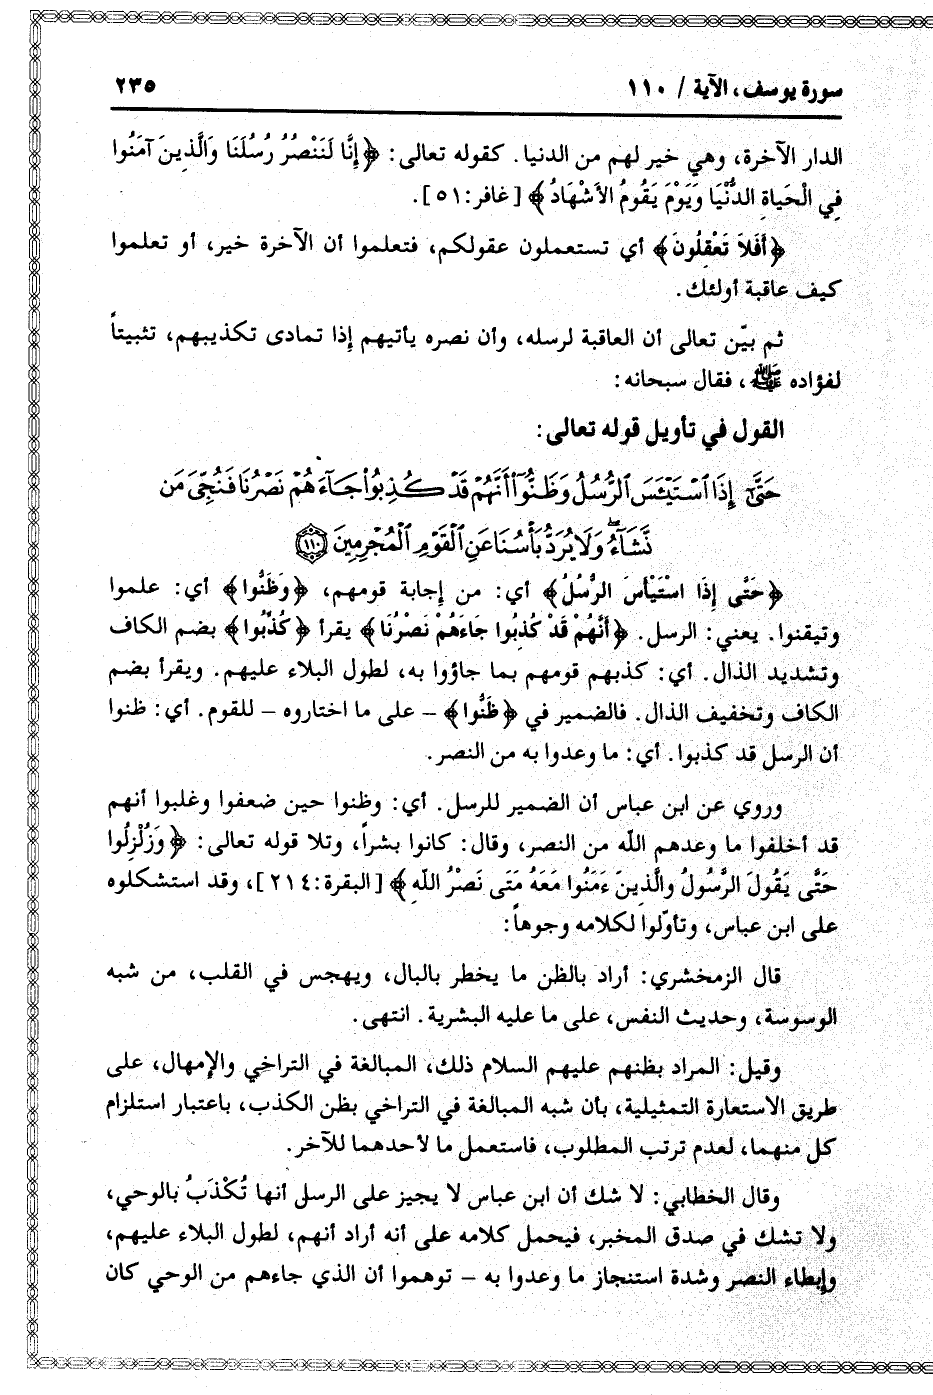 سورة يوسف، الآية / ١١٠ ٢٣٥
الدار الآخرة، وهي خير لهم من الدنيا. كقوله تعالى: ﴿إِنَّا لَنَنْصُرُ رُسُلَنَا وَالَّذِينَ آمَنُوا
فِي الْحَيَاةِ الدُّنْيَا وَيَوْمَ يَقُومُ الأَشْهَادُ﴾ [غافر:٥١].
﴿أَفَلاَ تَعْقِلُونَ﴾ أي تستعملون عقولكم، فتعلموا أن الآخرة خير، أو تعلموا
كيف عاقبة أولئك.
ثم بيّن تعالى أن العاقبة لرسله، وأن نصره يأتيهم إذا تمادى تكذيبهم، تثبيتاً
لفؤاده ﷺ، فقال سبحانه:
القول في تأويل قوله تعالى:
حَتَّىٰٓ إِذَا ٱسْتَيْـَٔسَ ٱلرُّسُلُ وَظَنُّوٓا۟ أَنَّهُمْ قَدْ كُذِبُوا۟ جَآءَهُمْ نَصْرُنَا فَنُجِّىَ مَن
نَّشَآءُ ۖ وَلَا يُرَدُّ بَأْسُنَا عَنِ ٱلْقَوْمِ ٱلْمُجْرِمِينَ ١١٠
﴿حَتَّى إِذَا اسْتَيْأَسَ الرُّسُلُ﴾ أي: من إجابة قومهم، ﴿وَظَنُّوا﴾ أي: علموا
وتيقنوا. يعني: الرسل. ﴿أَنَّهُمْ قَدْ كُذِبُوا جَاءَهُمْ نَصْرُنَا﴾ يقرأ ﴿كُذِّبُوا﴾ بضم الكاف
وتشديد الذال. أي: كذبهم قومهم بما جاؤوا به، لطول البلاء عليهم. ويقرأ بضم
الكاف وتخفيف الذال. فالضمير في ﴿ظَنُّوا﴾ – على ما اختاروه – للقوم. أي: ظنوا
أن الرسل قد كذبوا. أي: ما وعدوا به من النصر.
وروي عن ابن عباس أن الضمير للرسل. أي: وظنوا حين ضعفوا وغلبوا أنهم
قد أخلفوا ما وعدهم اللّه من النصر، وقال: كانوا بشراً، وتلا قوله تعالى: ﴿وَزُلْزِلُوا
حَتَّى يَقُولَ الرَّسُولُ والَّذِينَ ءَمَنُوا مَعَهُ مَتَى نَصْرُ اللَّهِ﴾ [البقرة:٢١٤]، وقد استشكلوه
على ابن عباس، وتأوّلوا لكلامه وجوهاً:
قال الزمخشري: أراد بالظن ما يخطر بالبال، ويهجس في القلب، من شبه
الوسوسة، وحديث النفس، على ما عليه البشرية. انتهى.
وقيل: المراد بظنهم عليهم السلام ذلك، المبالغة في التراخي والإمهال، على
طريق الاستعارة التمثيلية، بأن شبه المبالغة في التراخي بظن الكذب، باعتبار استلزام
كل منهما، لعدم ترتب المطلوب، فاستعمل ما لأحدهما للآخر.
وقال الخطابي: لا شك أن ابن عباس لا يجيز على الرسل أنها تُكْذَبُ بالوحي،
ولا تشك في صدق المخبر، فيحمل كلامه على أنه أراد أنهم، لطول البلاء عليهم،
وإبطاء النصر وشدة استنجاز ما وعدوا به – توهموا أن الذي جاءهم من الوحي كان